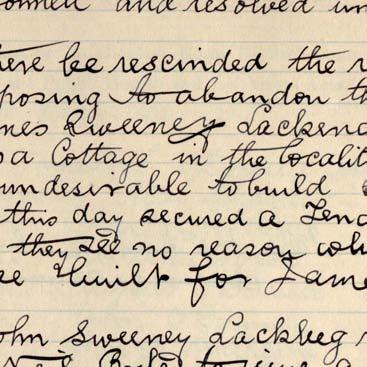 and resolved un
ere be rescinded the r
posing to abandon th
mes Sweeney Lackena
a Cottage in the localit
undesirable to build
this day secured a Tend
they see no reason wh
se built for Jame
ohn Sweeney Lackbeg